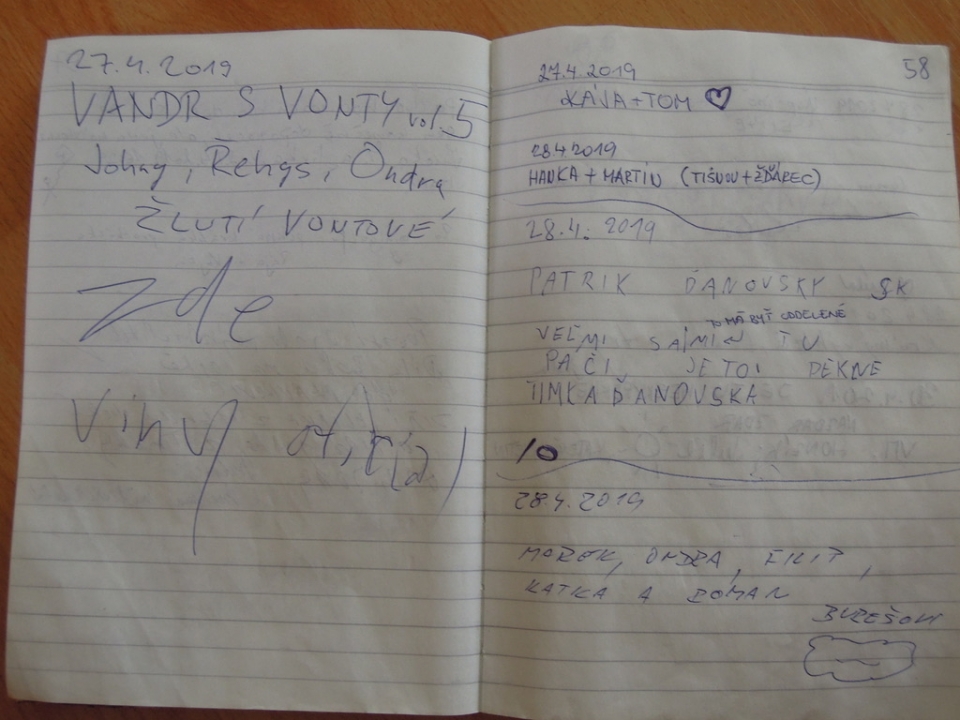 27.4.2019
VANDR S VONTY vol.5
Johny, Řehys, Ondra
ŽLUTÍ VONTOVÉ
zde
58
27.4.2019
KÁJA + TOM ♡
28.4.2019
HANKA + MARTIN (TIŠNOV + ŽĎÁREC)
28.4. 2019
PATRIK ĎANOVSKY SK
TO MÁ BYŤ ODDELENÉ
VEĽMI SA MI TU
PAČI, JE TO! PEKNE
TIMKA ĎANOVSKA
10
28.4.2019
MAREK, ONDRA, FILIP,
KATKA A ROMAN
BUREŠOVI